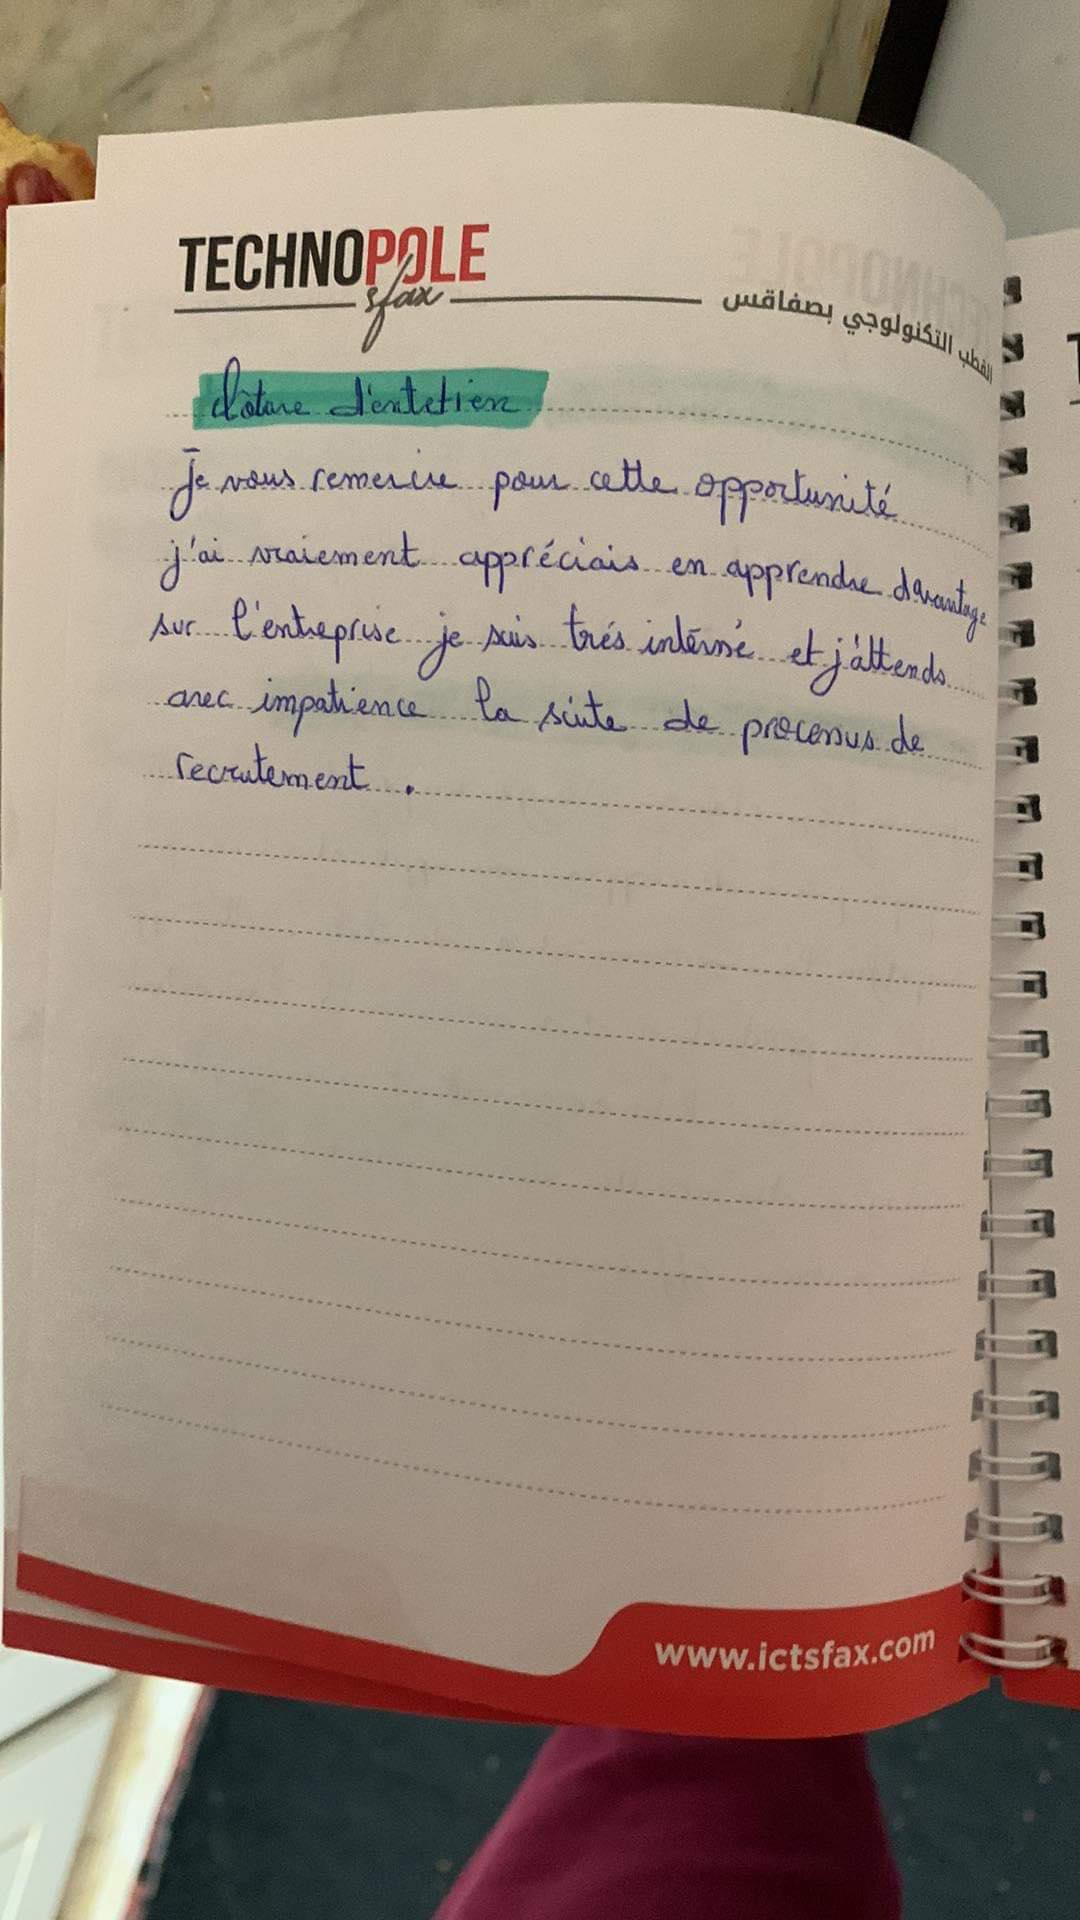 TECHNOPOLE
sfax
القطب التكنولوجي بصفاقس
Clôture d'entetien
Je vous remercie pour cette opportunité
j'ai vraiement appréciais en apprendre davantage
sur l'entreprise je suis trés interssé et j'attends
avec impatience la suite de processus de
recrutement .
www.ictsfax.com